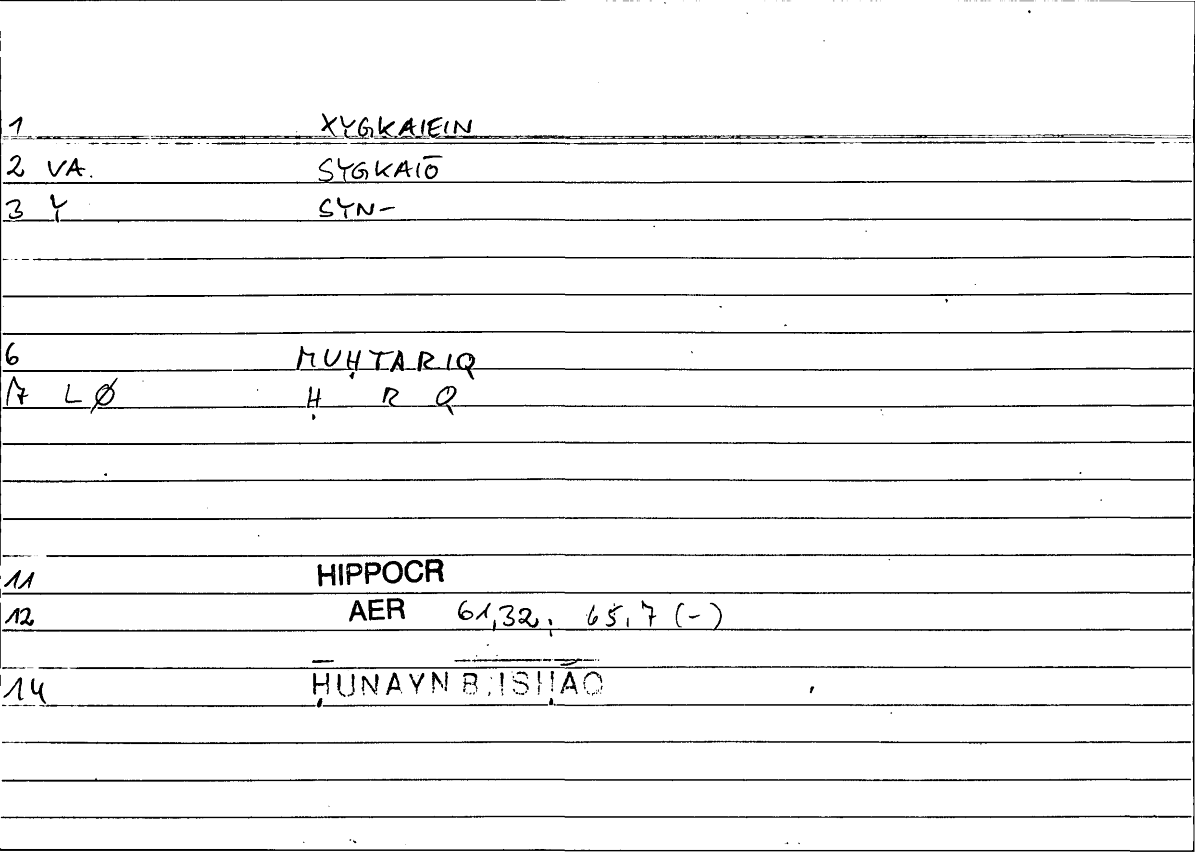 1 XYGKAIEIN
2 VA. SYGKAIŌ
3 Y SYN-
6 MUḤTARIQ
17 LØ Ḥ R Q
11 HIPPOCR
12 AER 61,32; 65,7 (-)
14 ḤUNAYN B. ISḤĀQ